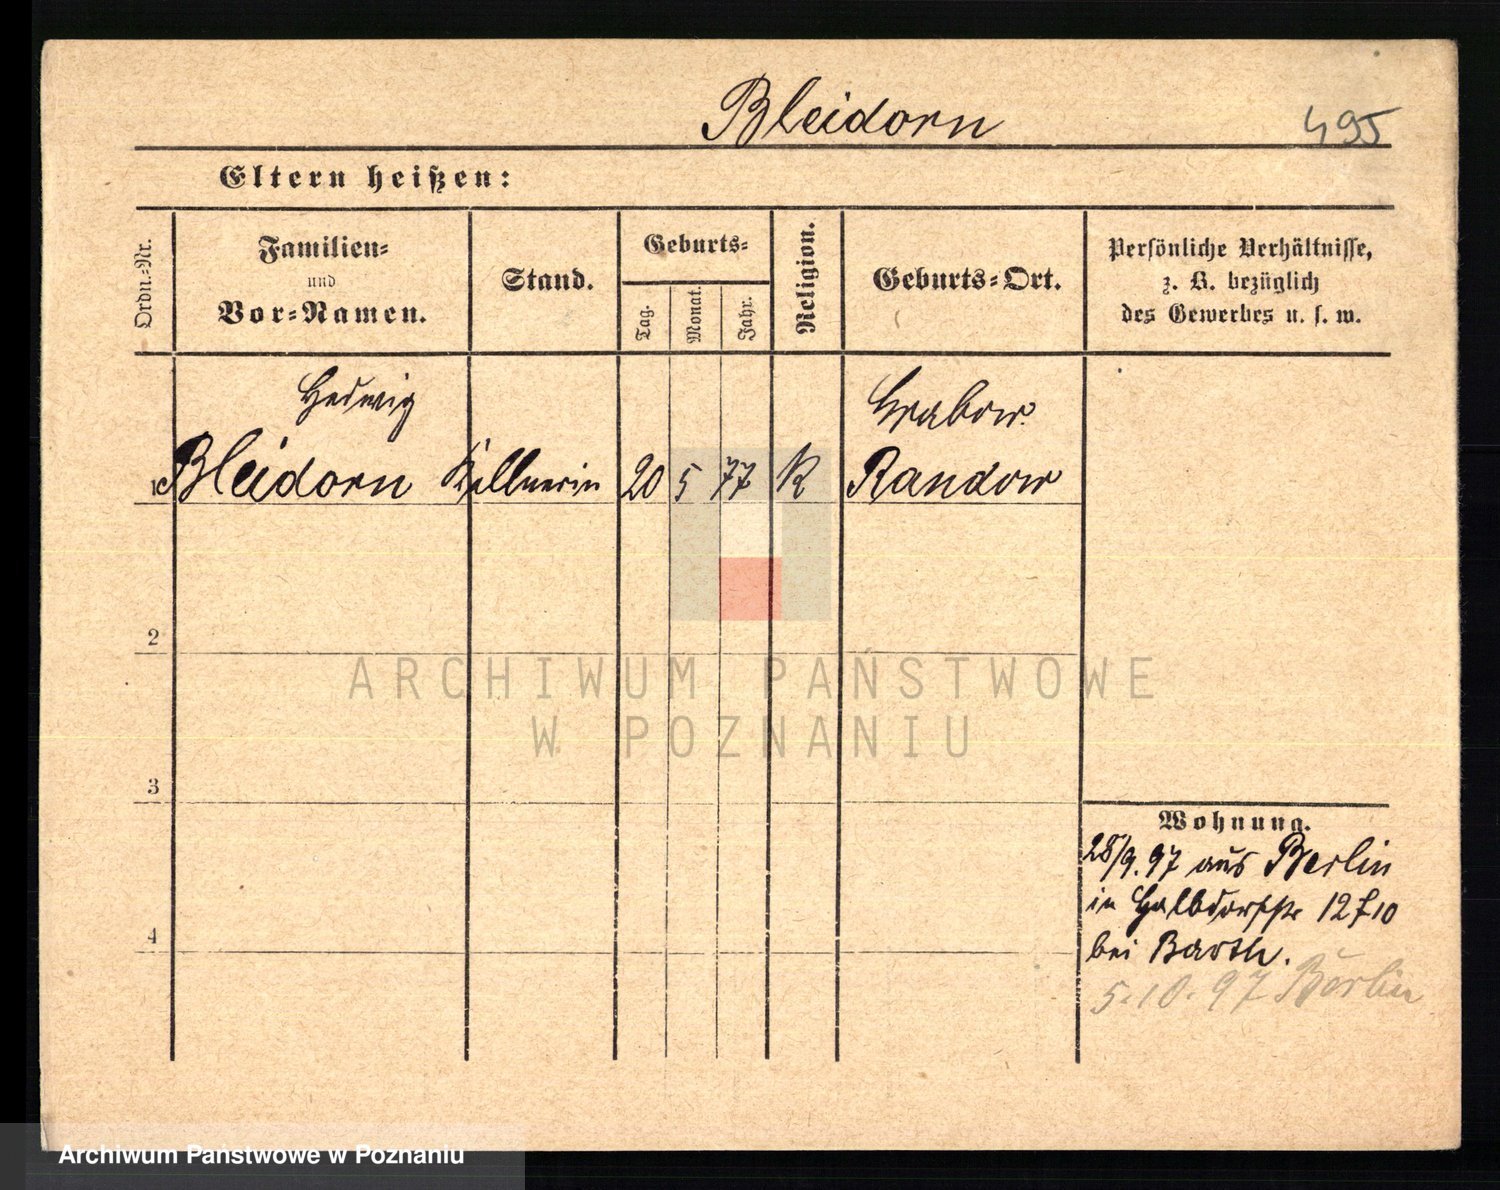 Bleidorn
495
Eltern heißen:
Ordn.-Nr.
Familien-
und
Vor-Namen.
Stand.
Geburts-
Tag.
Monat.
Jahr.
Religion.
Geburts-Ort.
Persönliche Verhältnisse,
z. B. bezüglich
des Gewerbes u. s. w.
Hedwig
Grabow
1 Bleidorn Kellnerin 20 5 77 K Randow
2
ARCHIWUM PAŃSTWOWE
W POZNANIU
3
Wohnung.
28/9.97 aus Berlin
in Halbdorfstr 12
4
bei Barth.
5.10.97 Berlin
Archiwum Państwowe w Poznaniu